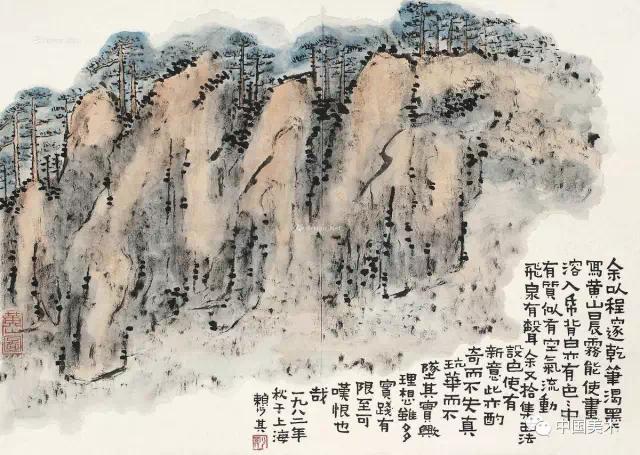 余以程邃乾筆渴墨
寫黄山晨霧能使畫
溶入帋背白亦有色色中
有質似有空氣流動
飛泉有聲耳余又拾集色法
設色使有
新意此亦酌
奇而不失真
玩華而不
墜其實歟
理想雖多
實踐有
限至可
嘆恨也
哉
一九八二年
秋于上海
賴少其
中国美术